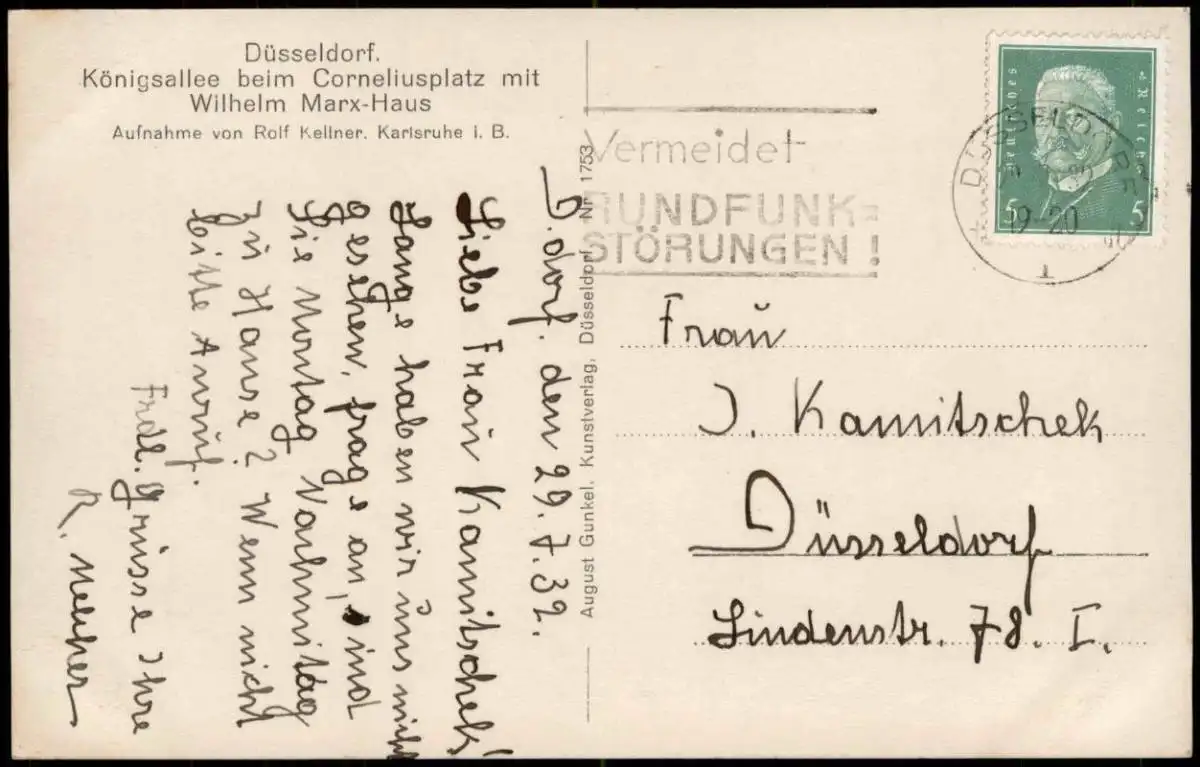 Düsseldorf.
Königsallee beim Corneliusplatz mit
Wilhelm Marx-Haus
Aufnahme von Rolf Kellner, Karlsruhe i. B.
D.dorf. den 29.7.32.
Liebe Frau Kamitschek!
Lange haben wir uns nicht
gesehen, frage an, sind
Sie Montag Nachmitag
zu Hause? Wenn nicht
bitte Anruf.
Frdl. Grüsse Ihre
R.
August Gunkel, Kunstverlag, Düsseldorf. Nr. 1753
Vermeidet
RUNDFUNK=
STÖRUNGEN!
DÜSSELDORF
19-20
1
Deutsches Reich
5 5
Frau
J. Kamitschek
Düsseldorf
Lindenstr. 78. I.